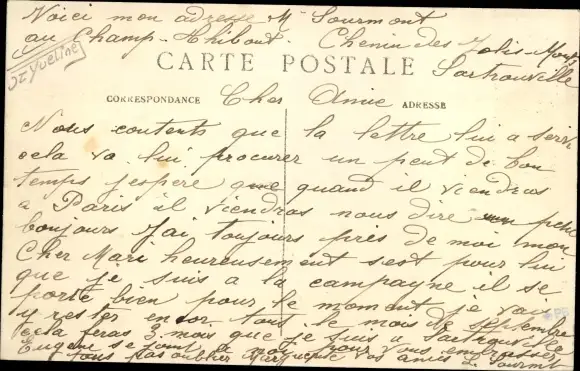 Voici mon adresse Mr Sourmont
au Champ-Thibout. Chemin des Jolis-Monts
Sartrouville
Dt Yveline
CARTE POSTALE
CORRESPONDANCE Cher Amie ADRESSE
Nous contents que la lettre lui a servi
cela va lui procurer un peut de bon
temps j'espere que quand il viendras
a Paris il viendras nous dire un petit
bonjours J'ai toujours près de moi mon
Cher Mari heureusement sest pour lui
que je suis a la campagne il se
porte bien pour le moment je vais
y rester encor tout le mois de septembre
cela feras 3 mois que je suis a Sartrouville
Eugene se joint a moi pour vous embrasser
sans pas oublier Marguerite vos amis L. Sourmt